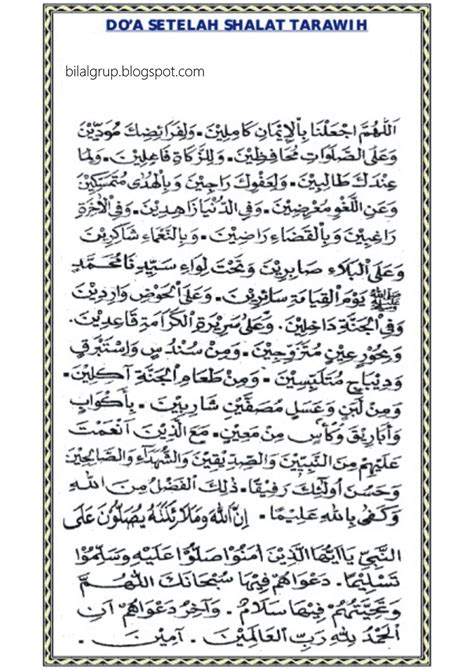 DO'A SETELAH SHALAT TARAWIH
bilalgrup.blogspot.com
اَللّٰهُمَّ اجْعَلْنَا بِالْإِيْمَانِ كَامِلِيْنَ. وَلِفَرَائِضِكَ مُؤَدِّيْنَ
وَعَلَى الصَّلَوَاتِ مُحَافِظِيْنَ. وَلِلزَّكَاةِ فَاعِلِيْنَ. وَلِمَا
عِنْدَكَ طَالِبِيْنَ. وَلِعَفْوِكَ رَاجِيْنَ وَبِالْهُدَى مُتَمَسِّكِيْنَ
وَعَنِ اللَّغْوِ مُعْرِضِيْنَ. وَفِي الدُّنْيَا زَاهِدِيْنَ. وَفِي الْآخِرَةِ
رَاغِبِيْنَ وَبِالْقَضَاءِ رَاضِيْنَ. وَبِالنَّعْمَاءِ شَاكِرِيْنَ
وَعَلَى الْبَلَاءِ صَابِرِيْنَ وَتَحْتَ لِوَاءِ سَيِّدِنَا مُحَمَّدٍ
ﷺ يَوْمَ الْقِيَامَةِ سَائِرِيْنَ. وَعَلَى الْحَوْضِ وَارِدِيْنَ
وَفِي الْجَنَّةِ دَاخِلِيْنَ. وَعَلَى سَرِيْرَةِ الْكَرَامَةِ قَاعِدِيْنَ.
وَبِحُوْرٍ عِيْنٍ مُتَزَوِّجِيْنَ. وَمِنْ سُنْدُسٍ وَاسْتَبْرَقٍ
وَدِيْبَاجٍ مُتَلَبِّسِيْنَ. وَمِنْ طَعَامِ الْجَنَّةِ آكِلِيْنَ.
وَمِنْ لَبَنٍ وَعَسَلٍ مُصَفَّيْنِ شَارِبِيْنَ. بِأَكْوَابٍ
وَأَبَارِيْقَ وَكَأْسٍ مِنْ مَعِيْنٍ. مَعَ الَّذِيْنَ أَنْعَمْتَ
عَلَيْهِمْ مِنَ النَّبِيِّيْنَ وَالصِّدِّيْقِيْنَ وَالشُّهَدَاءِ وَالصَّالِحِيْنَ
وَحَسُنَ أُولٰئِكَ رَفِيْقًا. ذٰلِكَ الْفَضْلُ مِنَ اللهِ
وَكَفَى بِاللهِ عَلِيْمًا. إِنَّ اللهَ وَمَلَائِكَتَهُ يُصَلُّوْنَ عَلَى
النَّبِيِّ يَا أَيُّهَا الَّذِيْنَ آمَنُوْا صَلُّوْا عَلَيْهِ وَسَلِّمُوْا
تَسْلِيْمًا. دَعْوَاهُمْ فِيْهَا سُبْحَانَكَ اللّٰهُمَّ
وَتَحِيَّتُهُمْ فِيْهَا سَلَامٌ. وَآخِرُ دَعْوَاهُمْ أَنِ
الْحَمْدُ لِلّٰهِ رَبِّ الْعَالَمِيْنَ. آمِيْنَ.